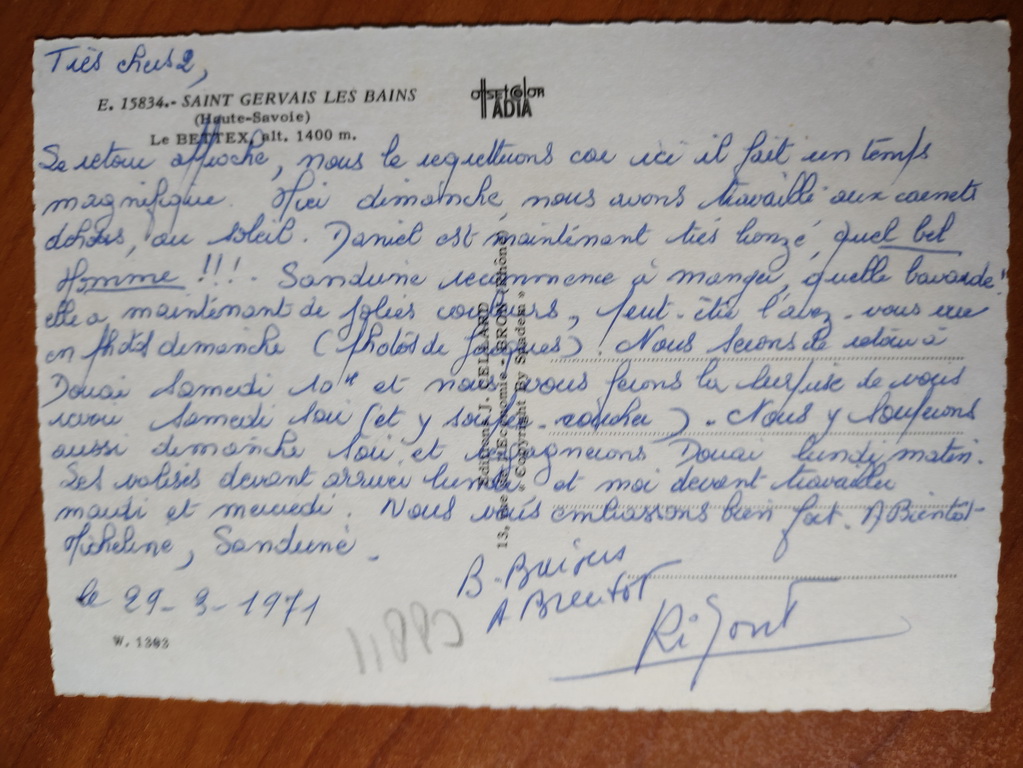 Très chers 2,
E. 15834.- SAINT GERVAIS LES BAINS
(Haute-Savoie)
Le BETTEX, alt. 1400 m.
OFFSET COLOR
ADIA
Le retour approche, nous le regrettons car ici il fait un temps
magnifique. Hier dimanche, nous avons travaillé aux carnets
dehors, au soleil. Daniel est maintenant très bronzé, quel bel
Homme !!!. Sandrine recommence à manger, quelle bavarde
elle a maintenant de jolies couleurs, peut-être l'avez-vous vue
en photos dimanche (photos de Jacques). Nous serons de retour à
Douai Samedi 10 et nous vous ferons la surprise de vous
revoir Samedi soir (et y souper - coucher). Nous y souperons
aussi dimanche soir et regagnerons Douai lundi matin.
Les valises devant arriver lundi et moi devant travailler
mardi et mercredi. Nous vous embrassons bien fort. A Bientôt
Micheline, Sandrine.
B. Baisers
A Bientot
le 29-3-1971
W. 1393
Editions J. CELLARD
13, Rue de l'Economie - BRON (Rhône)
« Copyright By Spadem »